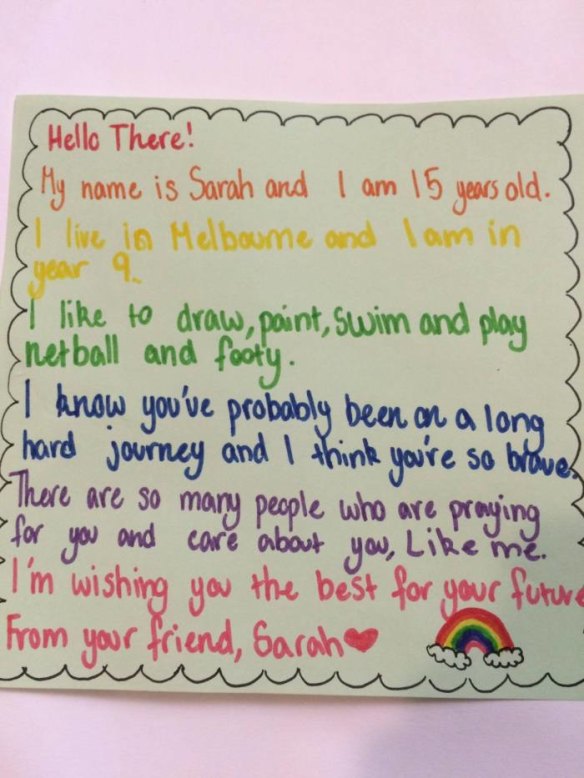 Hello There!
My name is Sarah and I am 15 years old.
I live in Melbourne and I am in
year 9.
I like to draw, paint, swim and play
netball and footy.
I know you've probably been on a long
hard journey and I think you're so brave.
There are so many people who are praying
for you and care about you, Like me.
I'm wishing you the best for your future
From your friend, Sarah♥